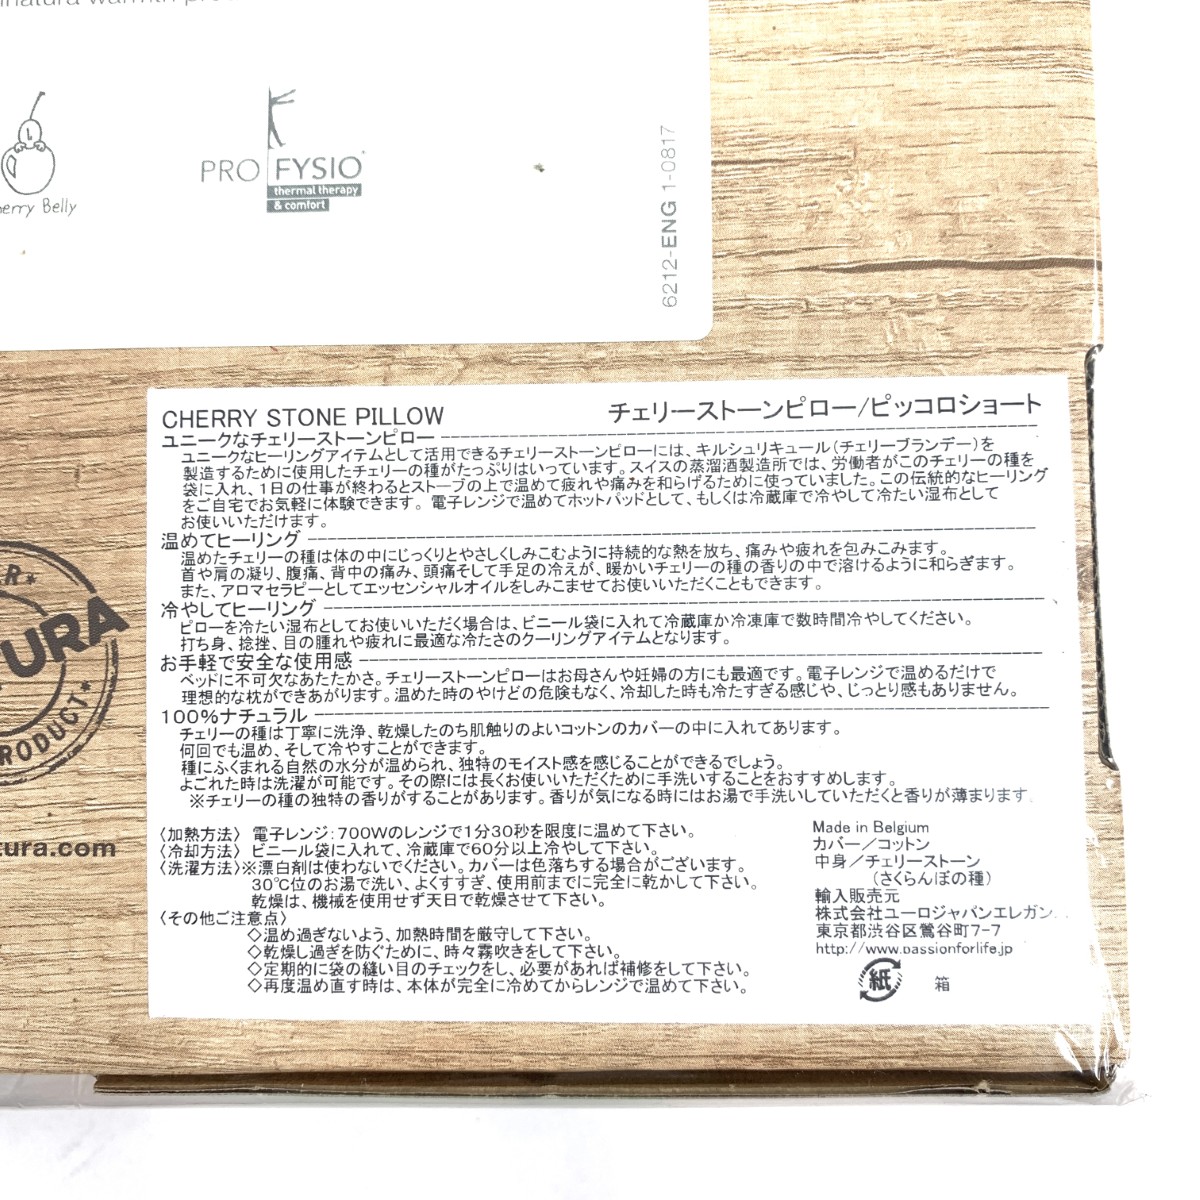 Belly
PRO FYSIO
thermal therapy
& comfort
6212-ENG 1-0817
CHERRY STONE PILLOW
チェリーストーンピロー/ピッコロショート
ユニークなチェリーストーンピロー
ユニークなヒーリングアイテムとして活用できるチェリーストーンピローには、キルシュリキュール（チェリーブランデー）を
製造するために使用したチェリーの種がたっぷりはいっています。スイスの蒸溜酒製造所では、労働者がこのチェリーの種を
袋に入れ、1日の仕事が終わるとストーブの上で温めて疲れや痛みを和らげるために使っていました。この伝統的なヒーリング
をご自宅でお気軽に体験できます。電子レンジで温めてホットパッドとして、もしくは冷蔵庫で冷やして冷たい湿布として
お使いいただけます。
温めてヒーリング
温めたチェリーの種は体の中にじっくりとやさしくしみこむように持続的な熱を放ち、痛みや疲れを包みこみます。
首や肩の凝り、腹痛、背中の痛み、頭痛そして手足の冷えが、暖かいチェリーの種の香りの中で溶けるように和らぎます。
また、アロマセラピーとしてエッセンシャルオイルをしみこませてお使いいただくこともできます。
冷やしてヒーリング
ピローを冷たい湿布としてお使いいただく場合は、ビニール袋に入れて冷蔵庫か冷凍庫で数時間冷やしてください。
打ち身、捻挫、目の腫れや疲れに最適な冷たさのクーリングアイテムとなります。
お手軽で安全な使用感
ベッドに不可欠なあたたかさ。チェリーストーンピローはお母さんや妊婦の方にも最適です。電子レンジで温めるだけで
理想的な枕ができあがります。温めた時のやけどの危険もなく、冷却した時も冷たすぎる感じや、じっとり感もありません。
100%ナチュラル
チェリーの種は丁寧に洗浄、乾燥したのち肌触りのよいコットンのカバーの中に入れてあります。
何回でも温め、そして冷やすことができます。
種にふくまれる自然の水分が温められ、独特のモイスト感を感じることができるでしょう。
よごれた時は洗濯が可能です。その際には長くお使いいただくために手洗いすることをおすすめします。
※チェリーの種の独特の香りがすることがあります。香りが気になる時にはお湯で手洗いしていただくと香りが薄まります。
〈加熱方法〉 電子レンジ：700Wのレンジで1分30秒を限度に温めて下さい。
〈冷却方法〉 ビニール袋に入れて、冷蔵庫で60分以上冷やして下さい。
〈洗濯方法〉※漂白剤は使わないでください。カバーは色落ちする場合がございます。
30℃位のお湯で洗い、よくすすぎ、使用前までに完全に乾かして下さい。
乾燥は、機械を使用せず天日で乾燥させて下さい。
〈その他ご注意点〉
◇温め過ぎないよう、加熱時間を厳守して下さい。
◇乾燥し過ぎを防ぐために、時々霧吹きをして下さい。
◇定期的に袋の縫い目のチェックをし、必要があれば補修をして下さい。
◇再度温め直す時は、本体が完全に冷めてからレンジで温めて下さい。
Made in Belgium
カバー／コットン
中身／チェリーストーン
（さくらんぼの種）
輸入販売元
株式会社ユーロジャパンエレガン
東京都渋谷区鶯谷町7-7
http://www.passionforlife.jp
紙 箱
URA
PRODUCT
tura.com